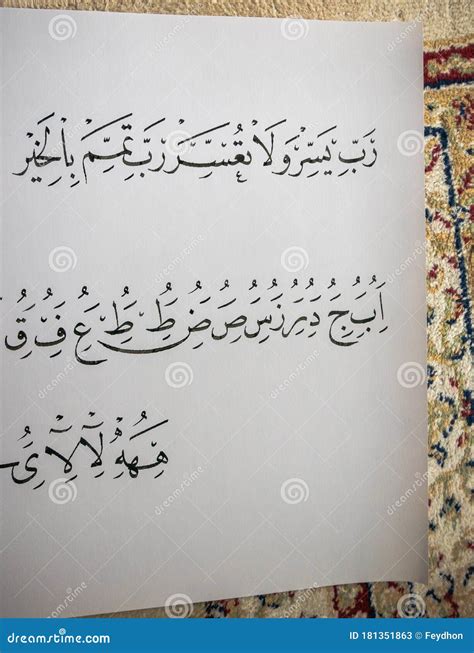 رَبِّ يَسِّرْ وَلَا تُعَسِّرْ رَبِّ تَمِّمْ بِالْخَيْرِ
اَبُبِ جُ دُرُ سُ صُصِ طُ طِ عُ فُ قُ
لَا لَا
dreamstime.com
ID 181351863 © Feydhon